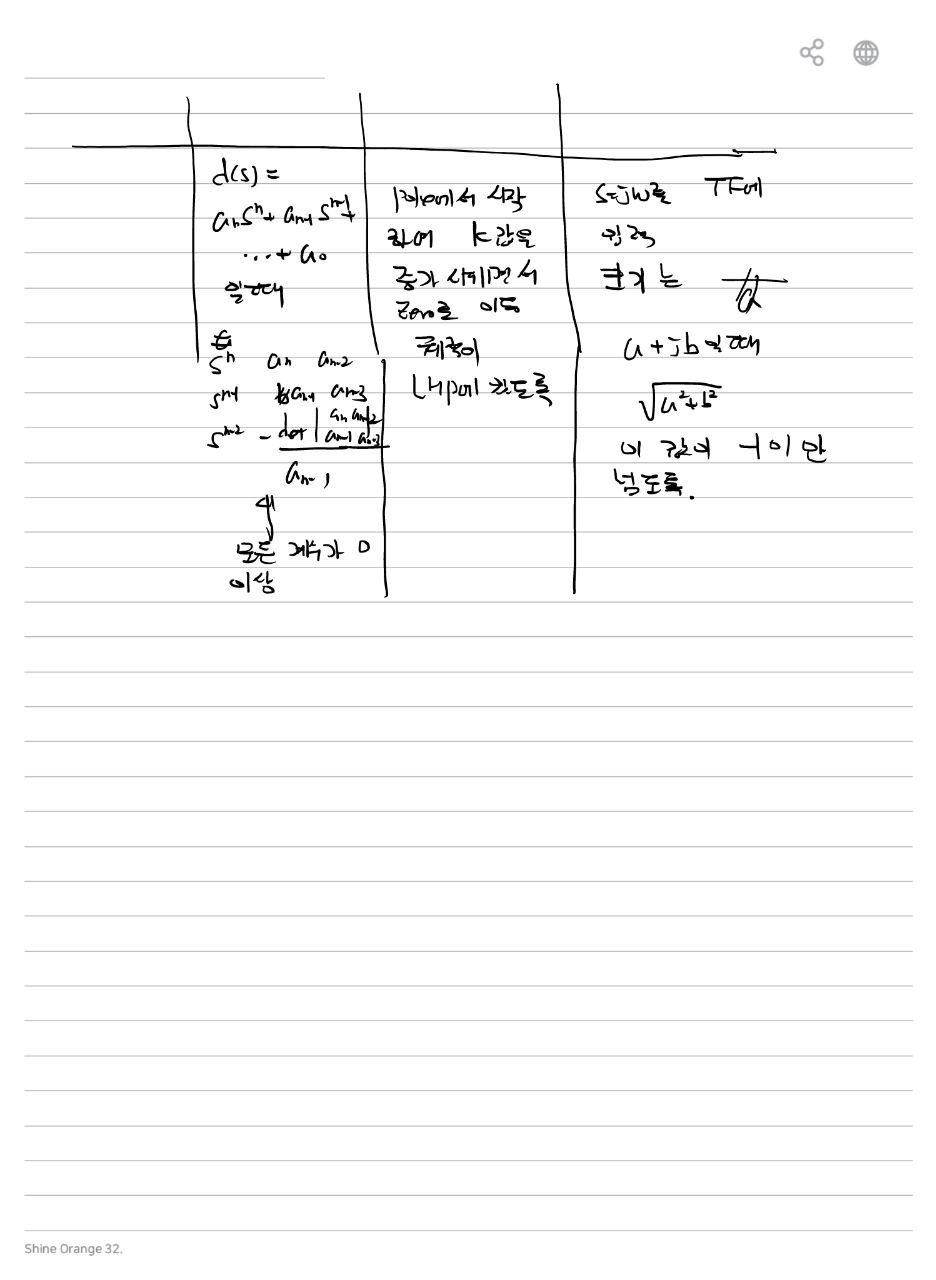 d(s) =
aₙsⁿ + aₙ₋₁sⁿ⁻¹ +
⋯ + a₀
일 때
sⁿ aₙ aₙ₋₂
sⁿ⁻¹ aₙ₋₁ aₙ₋₃
sⁿ⁻² - det | aₙ aₙ₋₂
aₙ₋₁ aₙ₋₃ |
aₙ₋₁
모든 계수가 0
이상
pole에서 시작
하여 k값을
증가 시키면서
zero로 이동
궤적이
LHP에 있도록
s=jw를 TF에
입력
크기는
a+jb일때
√a²+b²
이 값이 -1이 만
넘도록.
Shine Orange 32.